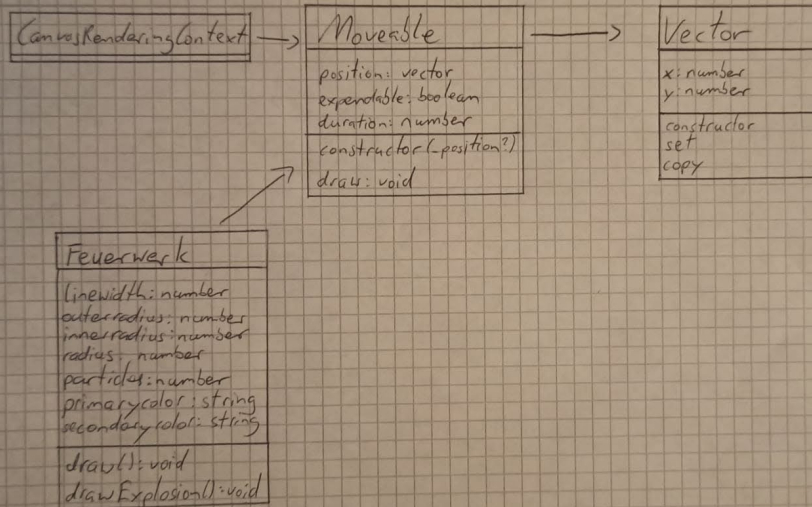 CanvasRenderingContext
Moveable
position: vector
expendable: boolean
duration: number
constructor(_position?)
draw: void
Vector
x: number
y: number
constructor
set
copy
Feuerwerk
linewidth: number
outerradius: number
innerradius: number
radius: number
particles: number
primarycolor: string
secondarycolor: string
draw(): void
drawExplosion(): void